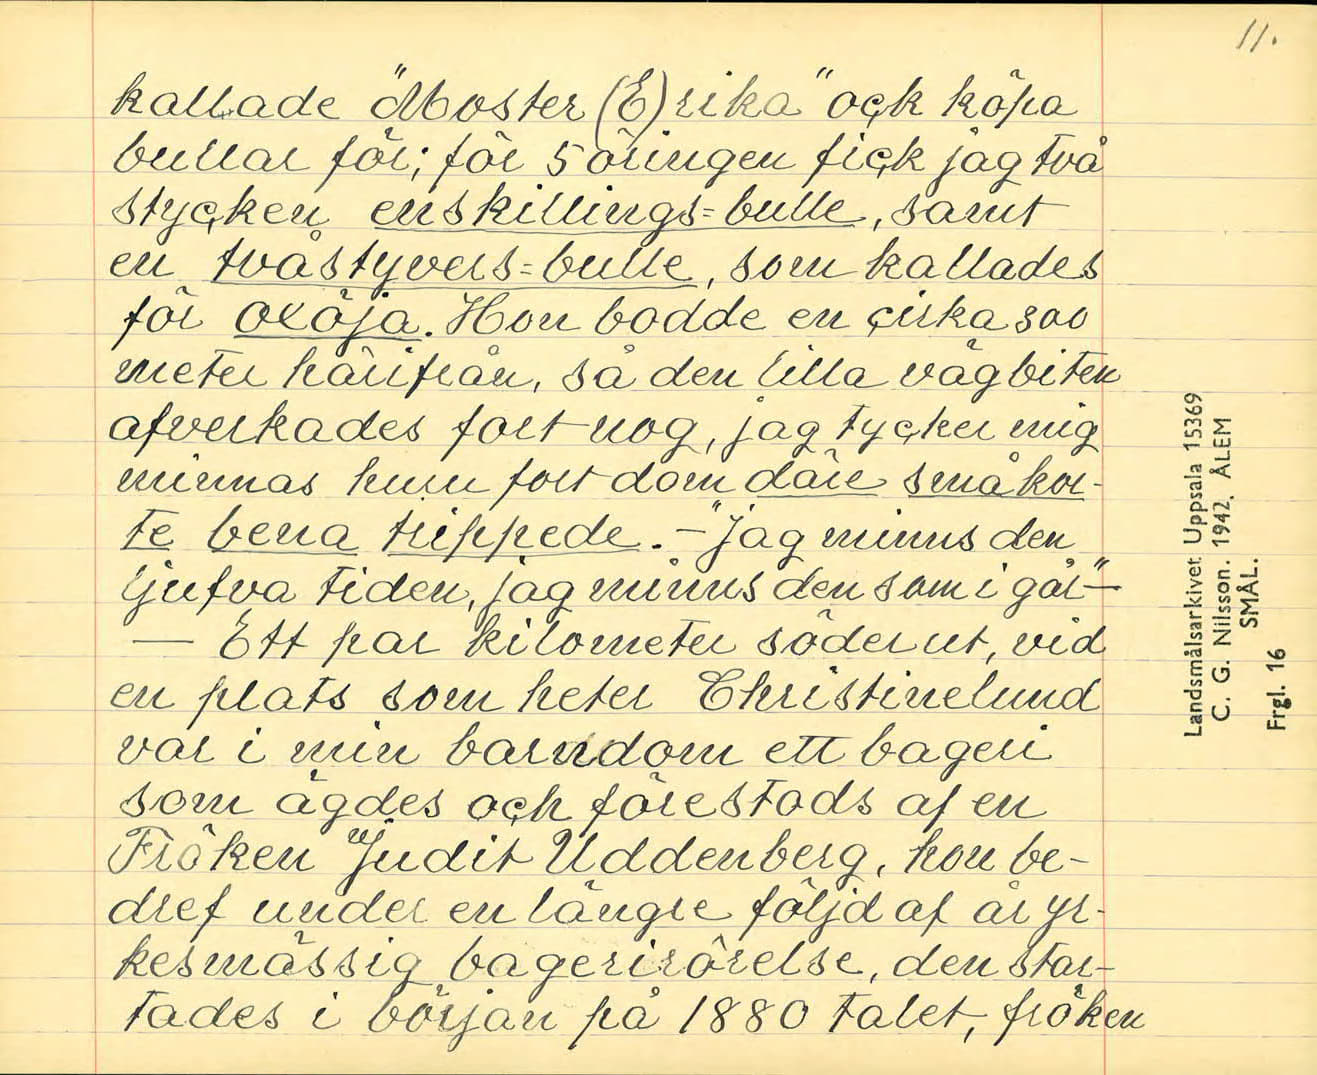 11.
kallade "Moster (E)rika" oçk köpa
bullar för; för 5 öringen fiçk jag två
styçken enskillings=bulle, samt
en tvåstyvers=bulle, som kallades
för oxöja. Hon bodde en çirka 300
meter härifrån, så den lilla vägbiten
afverkades fort nog, jag tyçker mig
minnas huru fort dom däre småkor-
te bena trippede. - "Jag minns den
ljufva tiden, jag minns den som i går" -
— Ett par kilometer söder ut, vid
en plats som heter Christinelund
var i min barndom ett bageri
som ägdes oçh förestods af en
Fröken Judit Uddenberg, hon be-
dref under en längre följd af år yr-
kesmässig bagerirörelse, den star-
tades i början på 1880 talet, fröken
Landsmålsarkivet Uppsala 15369
C. G. Nilsson. 1942. ÅLEM
SMÅL.
Frgl. 16